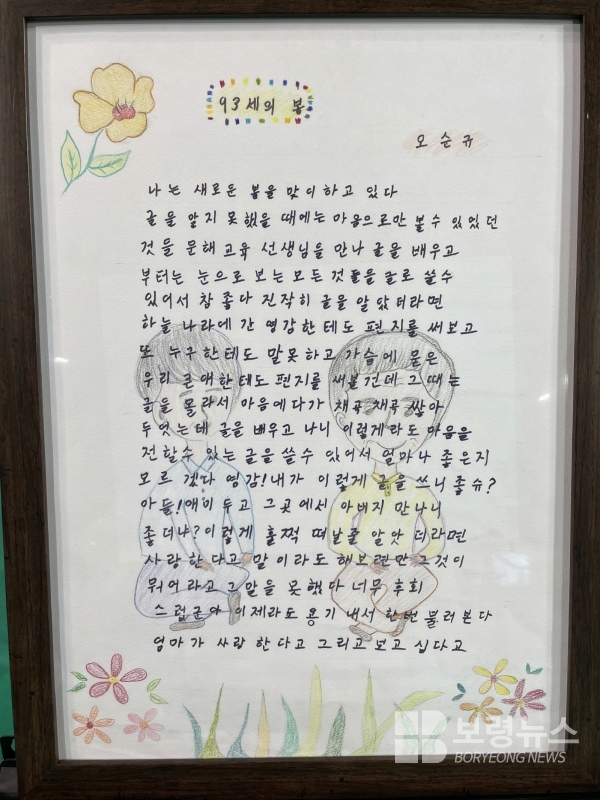 93세의 봄
오순규
나는 새로운 봄을 맞이하고 있다
글을 알지 못했을 때에는 마음으로만 볼수 있었던
것을 문해 교육 선생님을 만나 글을 배우고
부터는 눈으로 보는 모든 것들을 글로 쓸수
있어서 참 좋다 진작히 글을 알았더라면
하늘 나라에 간 영감한테도 편지를 써보고
또 누구한테도 말못하고 가슴에 묻은
우리 큰애한테도 편지를 써볼건데 그때는
글을 몰라서 마음에다가 채곡 채곡 쌓아
두엇는데 글을 배우고 나니 이렇게라도 마음을
전할수 있는 글을 쓸수 있어서 얼마나 좋은지
모르 겠다 영감! 내가 이렇게 글을 쓰니 좋슈?
아들! 애미 두고 그곳에서 아버지 만나니
좋더냐? 이렇게 훌쩍 떠날줄 알앗더라면
사랑한다고 말이라도 해보련만 그것이
뭐어라고 그말을 못했다 너무 후회
스럽군아 이제라도 용기 내서 한번 불러본다
엄마가 사랑 한다고 그리고 보고 십다고
보령뉴스
BORYEONG NEWS